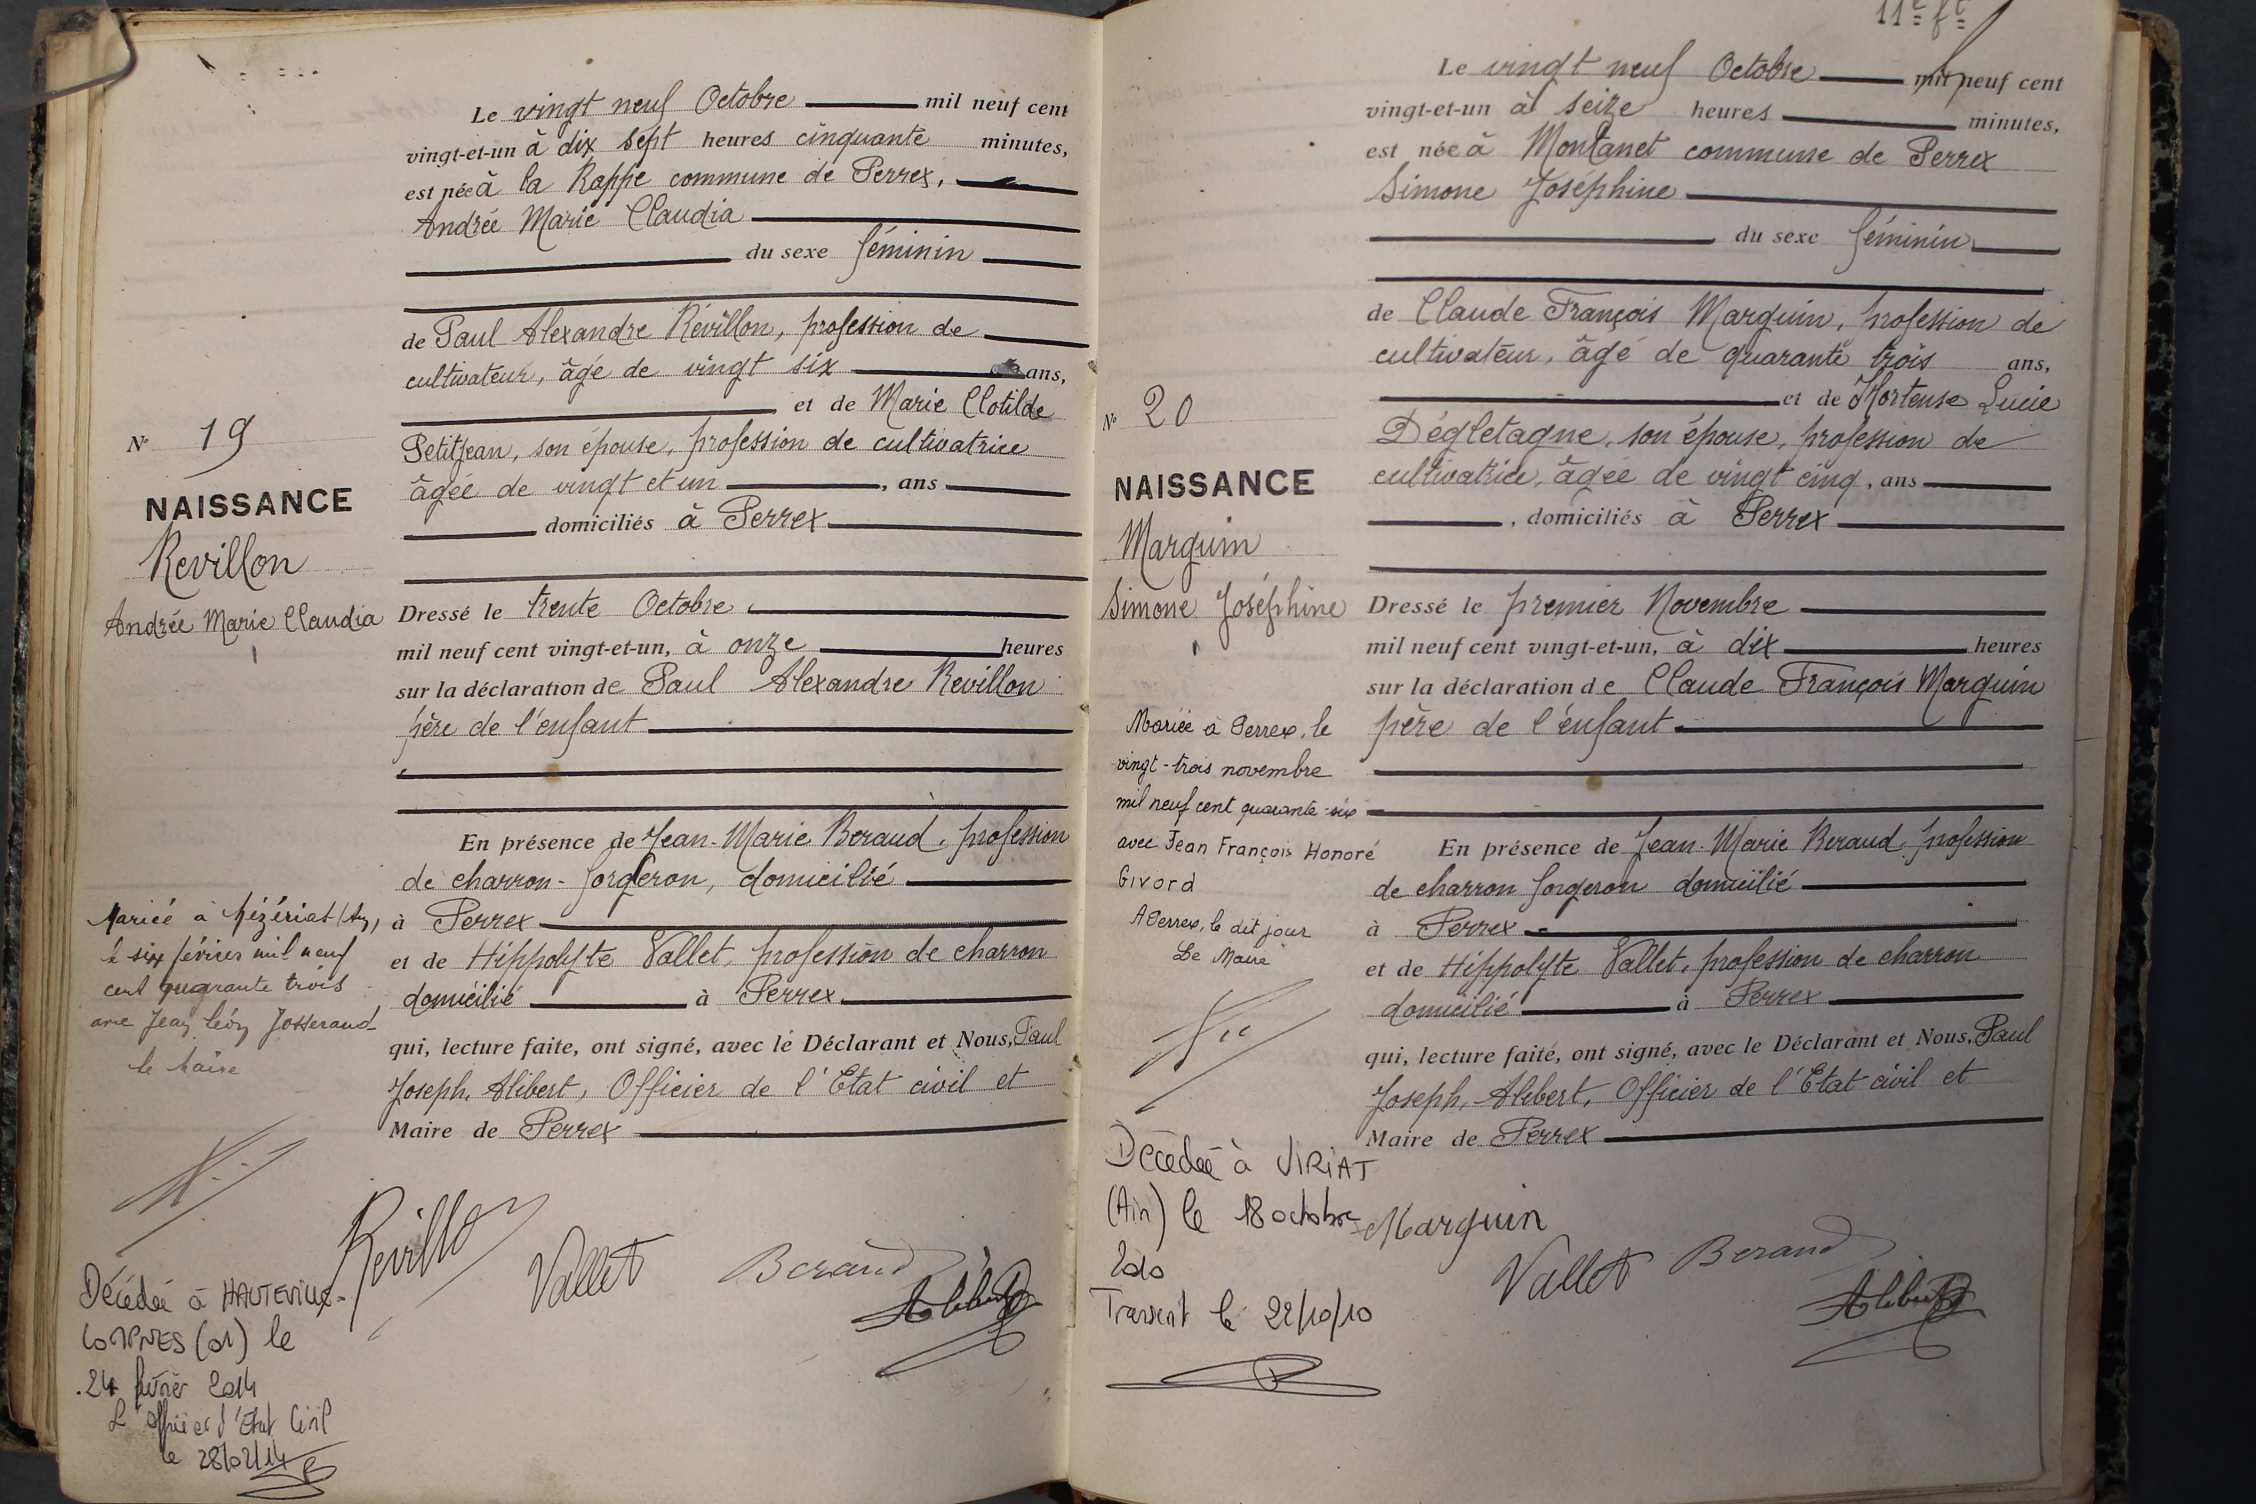 Le vingt neuf Octobre mil neuf cent
vingt-et-un à dix sept heures cinquante minutes,
est née à la Rappe commune de Perrex,
Andrée Marie Claudia
du sexe féminin
de Paul Alexandre Révillon, profession de
cultivateur, âgé de vingt six ans,
et de Marie Clotilde
Petitjean, son épouse, profession de cultivatrice
âgée de vingt et un, ans
domiciliés à Perrex
Dressé le trente Octobre,
mil neuf cent vingt-et-un, à onze heures
sur la déclaration de Paul Alexandre Revillon
père de l'enfant
En présence de Jean-Marie Beraud, profession
de charron-forgeron, domicilié
à Perrex
et de Hippolyte Vallet, profession de charron
domicilié à Perrex
qui, lecture faite, ont signé, avec le Déclarant et Nous, Paul
Joseph Alibert, Officier de l'Etat civil et
Maire de Perrex
Revillon
Vallet
Beraud
Alibert
N° 19
NAISSANCE
Revillon
Andrée Marie Claudia
Mariée à Mézériat (Ain)
le six février mil neuf
cent quarante trois
avec Jean Léon Josserand
le Maire
Décédée à HAUTEVILLE-
LOMPNES (01) le
24 février 2014
L'officier d'Etat Civil
le 28/02/14
11e ft
Le vingt neuf Octobre mil neuf cent
vingt-et-un à seize heures minutes,
est née à Montanet commune de Perrex
Simone Joséphine
du sexe féminin
de Claude François Marguin, profession de
cultivateur, âgé de quarante trois ans,
et de Hortense Lucie
Dégletagne, son épouse, profession de
cultivatrice, âgée de vingt cinq, ans
, domiciliés à Perrex
Dressé le premier Novembre
mil neuf cent vingt-et-un, à dix heures
sur la déclaration de Claude François Marguin
père de l'enfant
En présence de Jean-Marie Beraud, profession
de charron forgeron domicilié
à Perrex
et de Hippolyte Vallet, profession de charron
domicilié à Perrex
qui, lecture faite, ont signé, avec le Déclarant et Nous, Paul
Joseph, Alibert, Officier de l'Etat civil et
Maire de Perrex
Marguin
Vallet
Beraud
Alibert
N° 20
NAISSANCE
Marguin
Simone Joséphine
Mariée à Perrex, le
vingt-trois novembre
mil neuf cent quarante-six
avec Jean François Honoré
Givord
A Perrex, le dit jour
Le Maire
Décédée à VIRIAT
(Ain) le 18 octobre
2010
Transcrit le 22/10/10